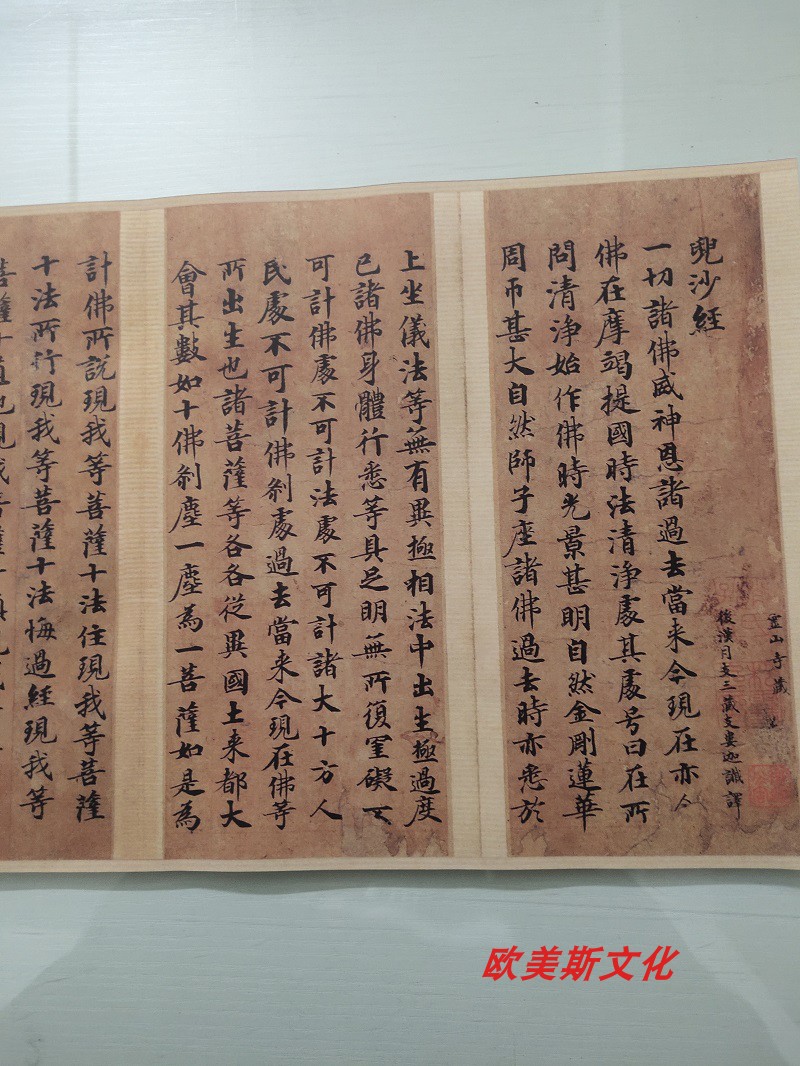 靈山寺藏
兜沙經
後漢月支三藏支婁迦讖譯
一切諸佛威神恩諸過去當来今現在亦今
佛在摩竭提國時法清淨處其處号曰在所
問清淨始作佛時光景甚明自然金剛蓮華
周帀甚大自然師子座諸佛過去時亦悉於
上坐儀法等無有異極相法中出生極過度
已諸佛身體行悉等具足明無所復罣礙不
可計佛處不可計法處不可計諸大十方人
民處不可計佛剎處過去當来今現在佛等
所出生也諸菩薩等各各從異國土来都大
會其數如十佛剎塵一塵為一菩薩如是為
計佛所說現我等菩薩十法住現我等菩薩
十法所行現我等菩薩十法悔過經現我等
欧美斯文化